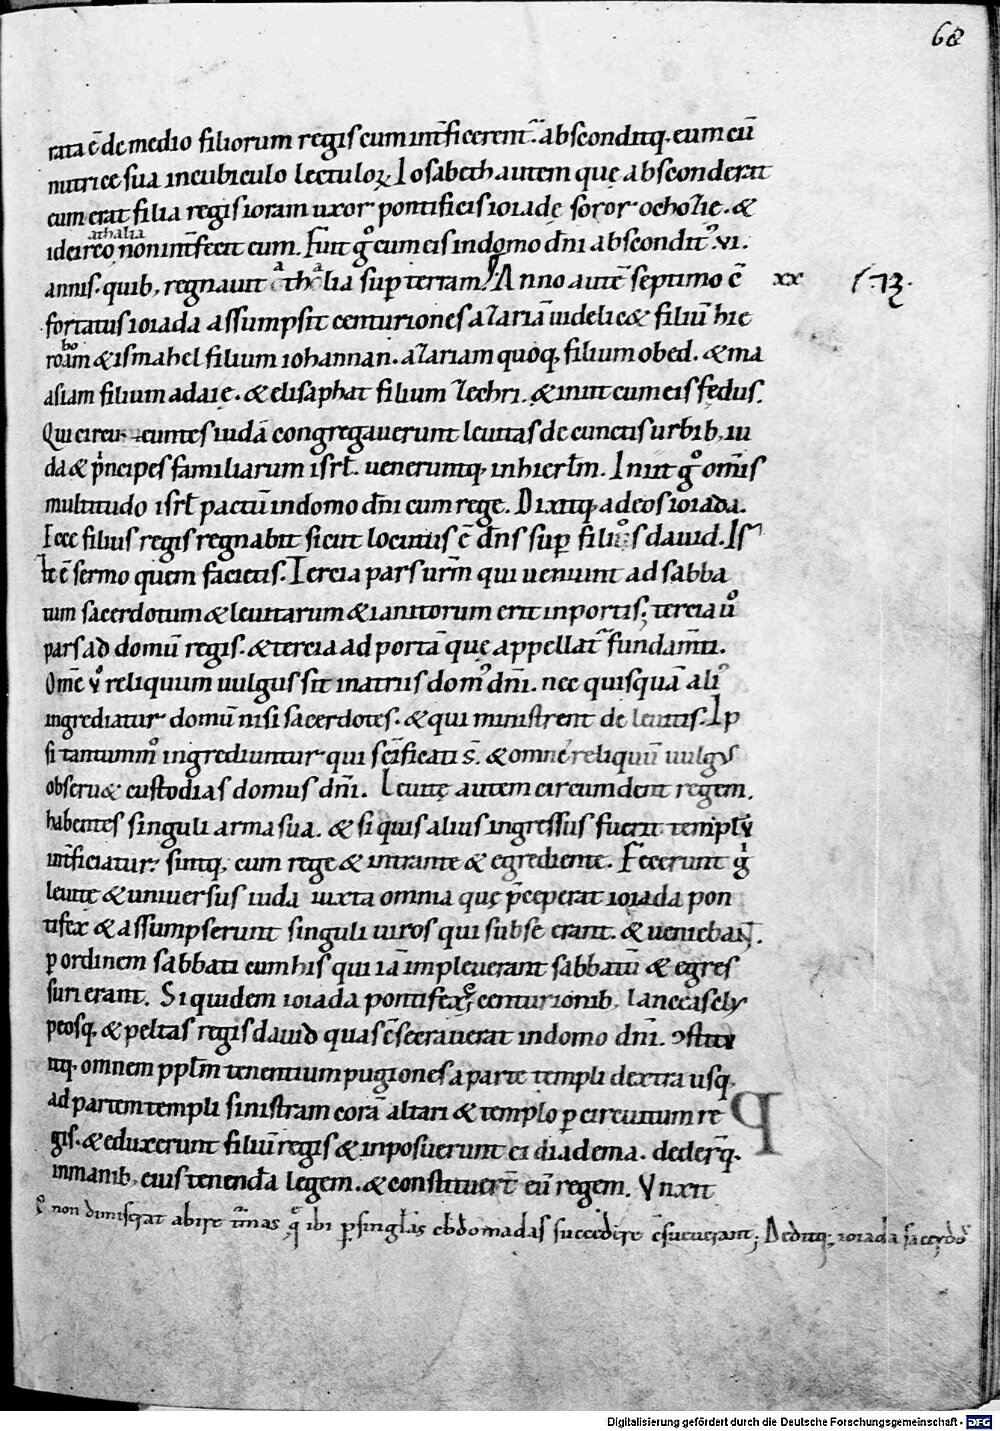 68
rata ē de medio filiorum regis cum int̄ficerent᷑. absconditq; eum cū
nutrice sua in cubiculo lectuloꝝ. Iosabeth autem que absconderat
eum erat filia regis ioram uxor pontificis ioiade soror ochozie. &
athalia
idcirco non int̄fecit eum. Fuit gͦ cum eis in domo dn̄i abscondit᷒ .vi.
annis. quib; regnauit athalia sup terram. Anno autē septimo cō
xx
fortatus ioiada assumpsit centuriones azariā uidelic& filiū hie
roboam & ismahel filium iohannan. azariam quoq; filium obed. & ma
asiam filium adaie. & elisaphat filium zechri. & iniit cum eis fędus.
Qui circumeuntes iudā congregauerunt leuitas de cunctis urbib; iu
da & pͥncipes familiarum isrł. ueneruntq; in hierl̄m. Iniit gͦ om̄is
multitudo isrł pactū in domo dn̄i cum rege. Dixitq; ad eos ioiada.
Ecce filius regis regnabit sicut locutus ē dn̄s sup filios dauid. Is
te ē sermo quem facietis. Tercia pars ur̄m qui ueniunt ad sabba
tum sacerdotum & leuitarum & ianitorum erit in portis; tercia uͦ
pars ad domū regis. & tercia ad portā que appellat᷑ fundam̄ti.
Om̄e uͦ reliquum uulgus sit in atriis dom᷒ dn̄i. nec quisquā ali᷒
ingrediatur domū nisi sacerdotes. & qui ministrent de leuitis. Ip
si tantummͦ ingrediuntur qui sc̄ificati s̄. & omne reliquū uulgus
obseru& custodias domus dn̄i. Leuitę autem circumdent regem.
habentes singuli arma sua. & si quis alius ingressus fuerit templū
int̄ficiatur. sintq; cum rege & intrante & egrediente. Fecerunt gͦ
leuitę & uniuersus iuda iuxta omnia que p̄ceperat ioiada pon
tifex & assumpserunt singuli uiros qui sub se erant. & ueniebant
ꝑ ordinem sabbati cum his qui iā impleuerant sabbatū & egres
suri erant. Siquidem ioiada pontifex centurionib; lanceas cly
peosq; & peltas regis dauid quas cōsecrauerat in domo dn̄i. ꝯstitu
itq; omnem ppl̄m tenentium pugiones a parte templi dextra usq;
ad partem templi sinistram corā altari & templo ꝑ circuitum re
gis. & eduxerunt filiū regis & inposuerunt ei diadema. dederq;
in manib; eius tenendā legem. & constituert̄ eū regem. Vnxit
non dimiserat abire t̄mas q̄ ibi ꝑ singl̄as ebdomadas succedere cōsueuerant; Deditq; ioiada sacerdos
Digitalisierung gefördert durch die Deutsche Forschungsgemeinschaft - DFG